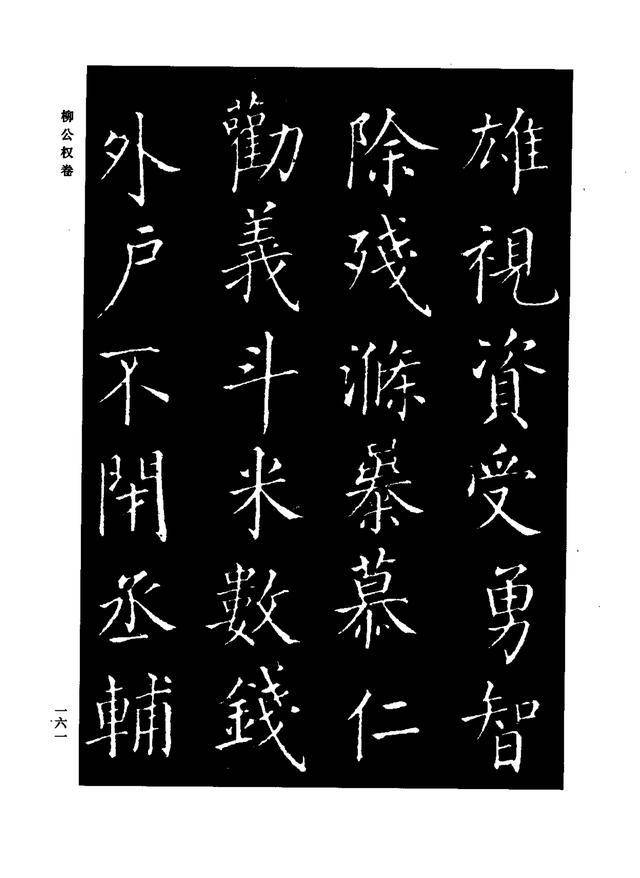 雄視資受勇智
除殘滌暴慕仁
勸義斗米數錢
外戶不閇丞輔
柳公权卷
一六一